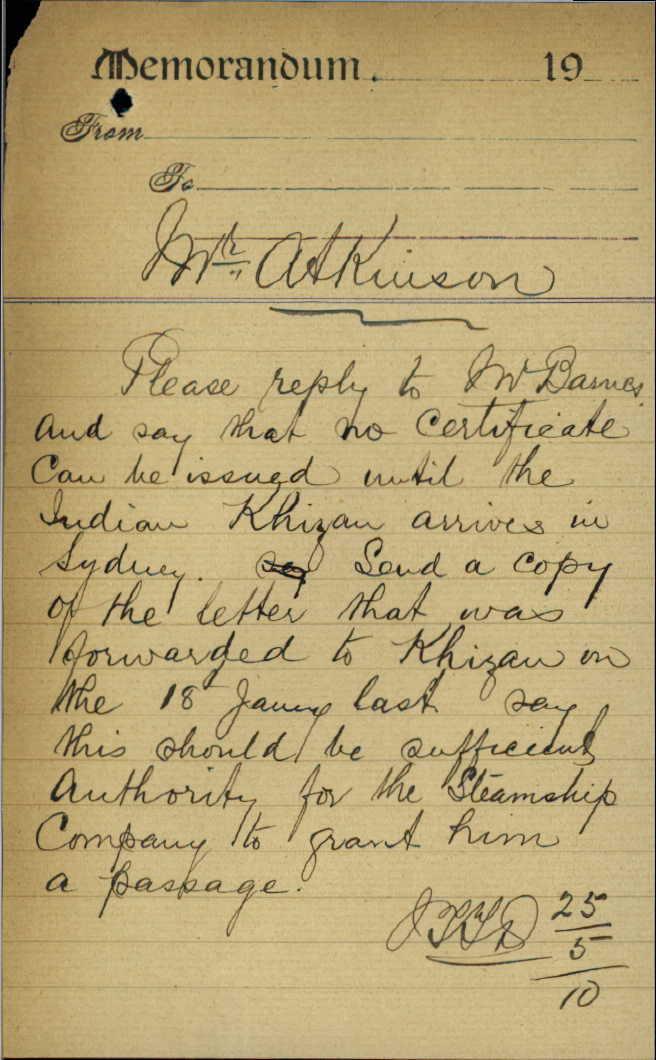 Memorandum. 19
From
To
Mr. Atkinson
Please reply to Mr Barnes
and say that no certificate
can be issued until the
Indian Khizan arrives in
Sydney. Send a copy
of the letter that was
forwarded to Khizan on
the 18 Jany last say
this should be sufficient
authority for the Steamship
Company to grant him
a passage.
25
5
10